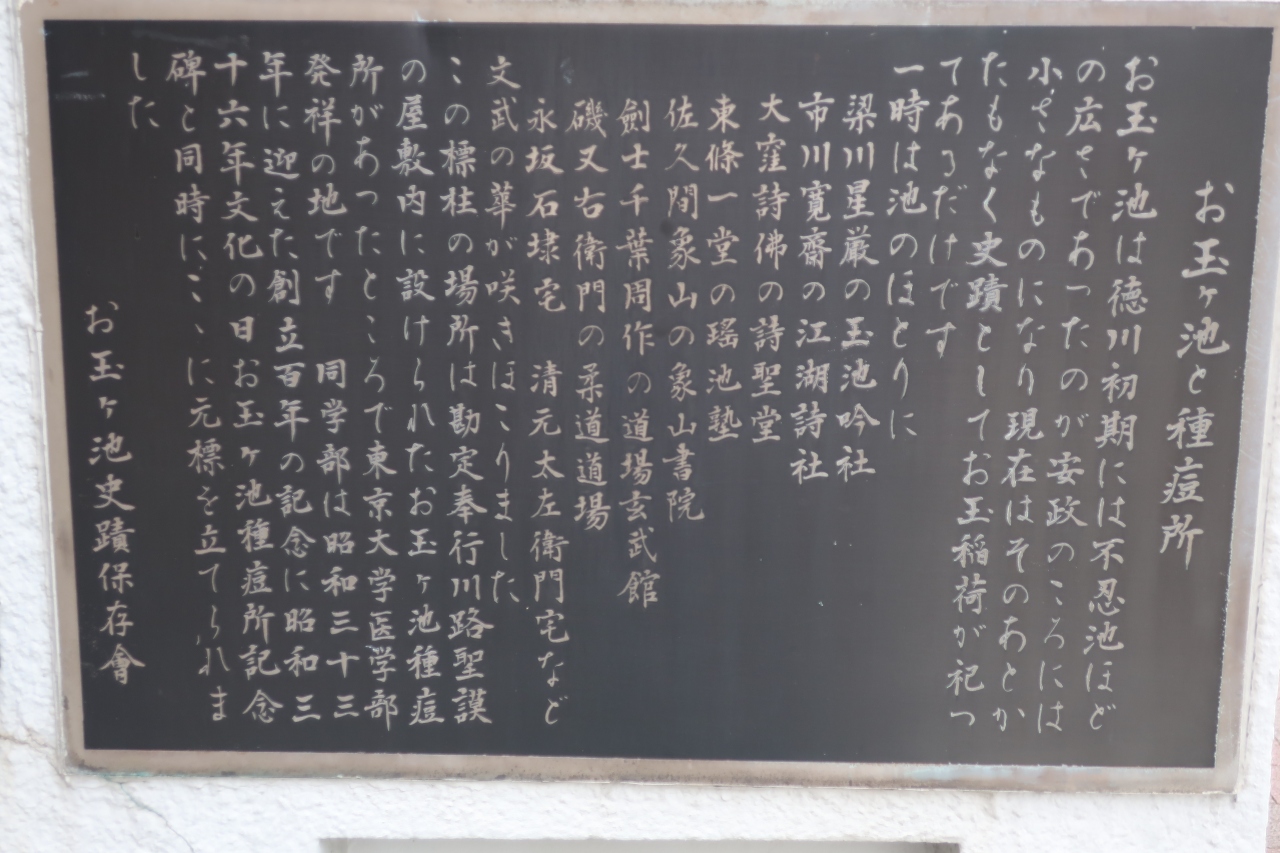 お玉ヶ池と種痘所
お玉ヶ池は徳川初期には不忍池ほど
の広さであったのが安政のころには
小さなものになり現在はそのあとか
たもなく史蹟としてお玉稲荷が祀っ
てあるだけです
一時は池のほとりに
梁川星巌の玉池吟社
市川寛齋の江湖詩社
大窪詩佛の詩聖堂
東條一堂の瑤池塾
佐久間象山の象山書院
劍士千葉周作の道場玄武館
磯又右衛門の柔道道場
永坂石埭宅 清元太左衛門宅など
文武の華が咲きほこりました
この標柱の場所は勘定奉行川路聖謨
の屋敷内に設けられたお玉ヶ池種痘
所があったところで東京大学医学部
発祥の地です 同学部は昭和三十三
年に迎えた創立百年の記念に昭和三
十六年文化の日お玉ヶ池種痘所記念
碑と同時にこゝに元標を立てられま
した
お玉ヶ池史蹟保存會